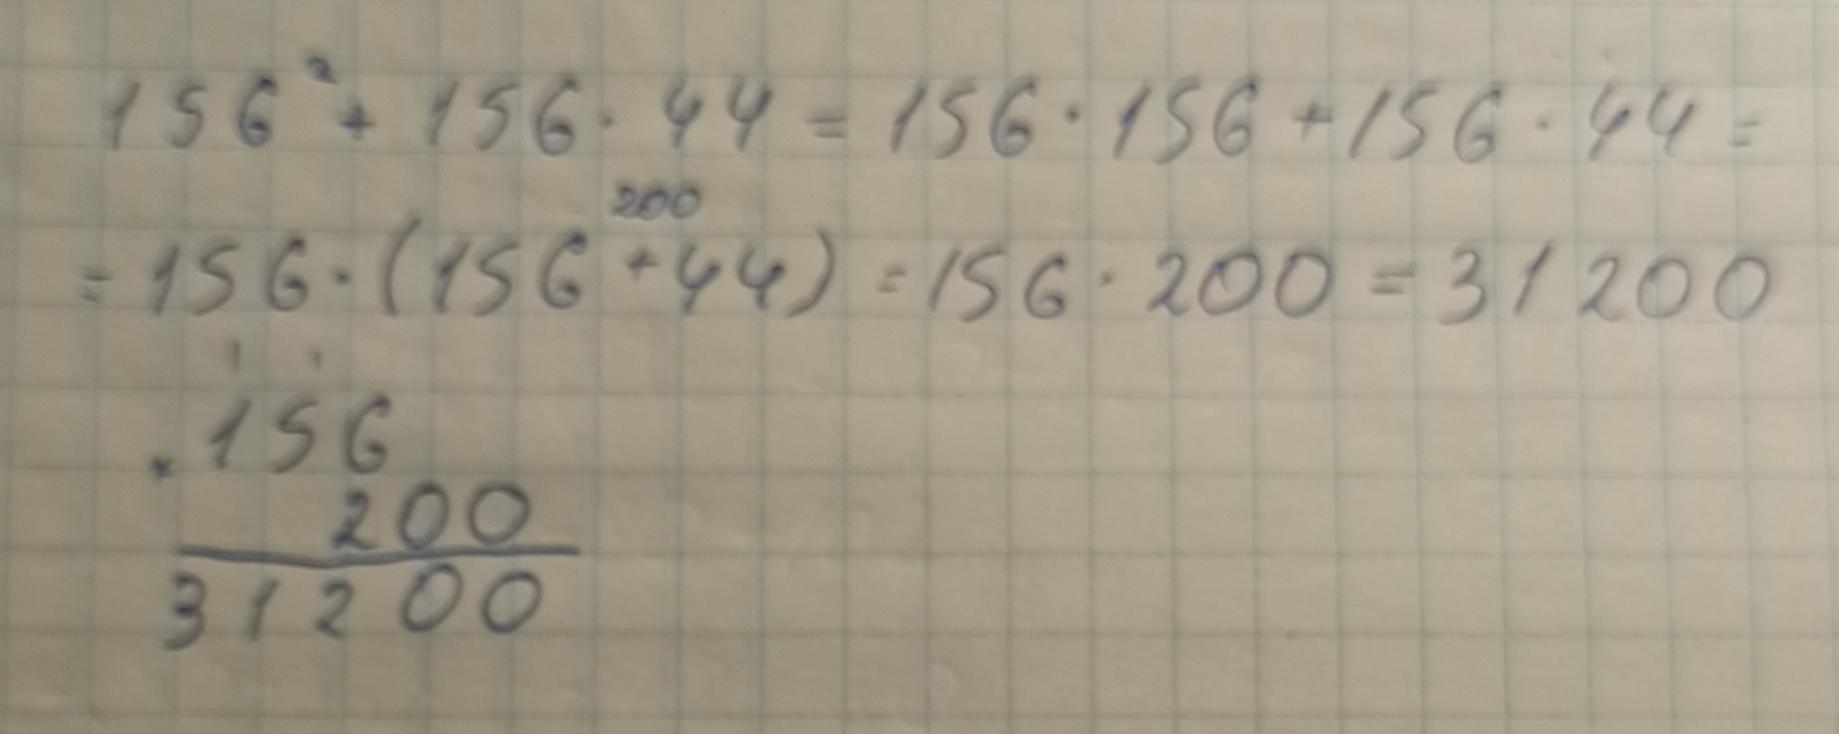 156² + 156 · 44 = 156 · 156 + 156 · 44 =
200
= 156 · (156 + 44) = 156 · 200 = 31200
1 1
× 156
200
31200